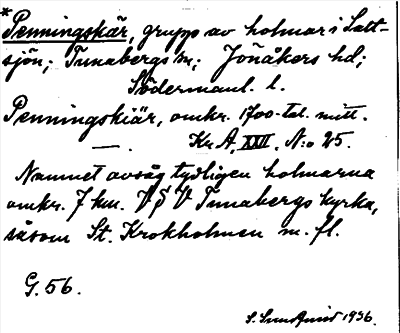 *Penningskär, grupp av holmar i Salt-
sjön; Tunabergs sn; Jönåkers hd;
Södermanl. l.
Penningskiär, omkr. 1700-tal. mitt.
—. Kr. A. XXII. N:o 25.
Namnet avsåg tydligen holmarna
omkr. 7 km. V S V Tunabergs kyrka,
såsom St. Krokholmen m. fl.
G. 56.
S. 1936.